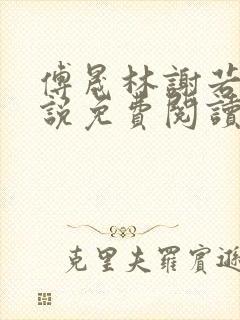 傅晟林謝若
說免費閱讀
克里夫羅賓遜